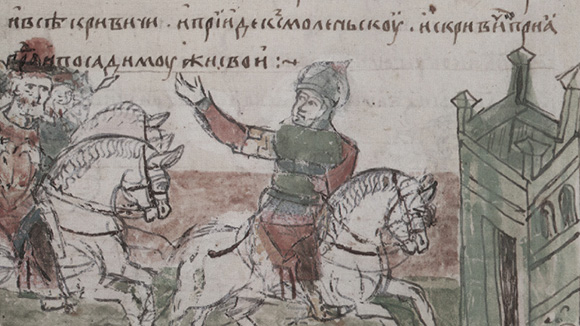 ивсѣ кривичи · и прїиде къ смоленьскоу · искриви приа
и посади моужи свои :~